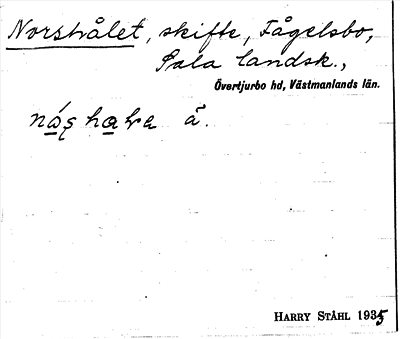 Norshålet, skifte, Fågelsbo,
Sala landsk.,
Övertjurbo hd, Västmanlands län.
å.
HARRY STÅHL 1935